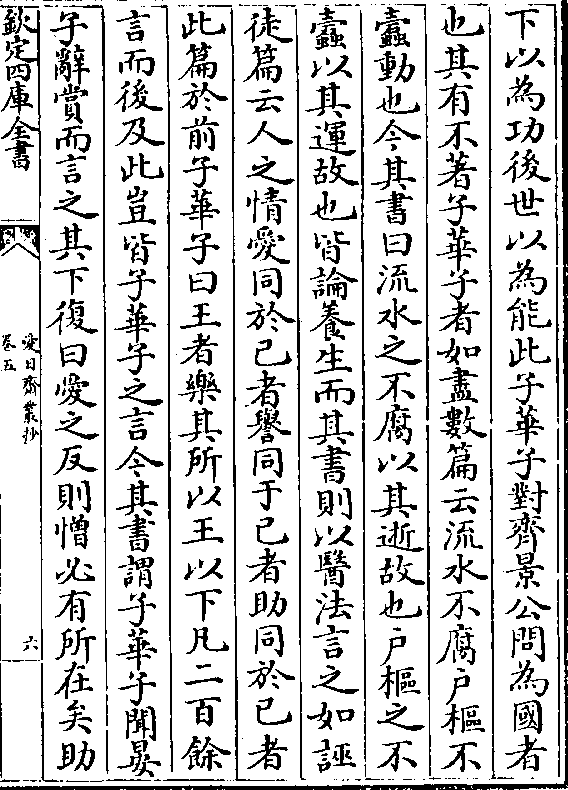 下以為功後世以為能此子華子對齊景公問為國者
也其有不著子華子者如盡數篇云流水不腐户樞不
蠹動也今其書曰流水之不腐以其逝故也户樞之不
蠹以其運故也皆論養生而其書則以醫法言之如誣
徒篇云人之情愛同於已者譽同于已者助同於已者
此篇於前子華子曰王者樂其所以王以下凡二百餘
言而後及此豈皆子華子之言今其書謂子華子聞晏
子辭賞而言之其下復曰愛之反則憎必有所在矣助
欽定四庫全書
愛日齋叢抄
卷五
六